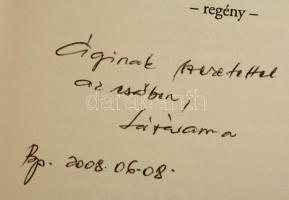 – regény –
Áginak szeretettel
az esőben,
Bp. 2008.06.08.
darabanth